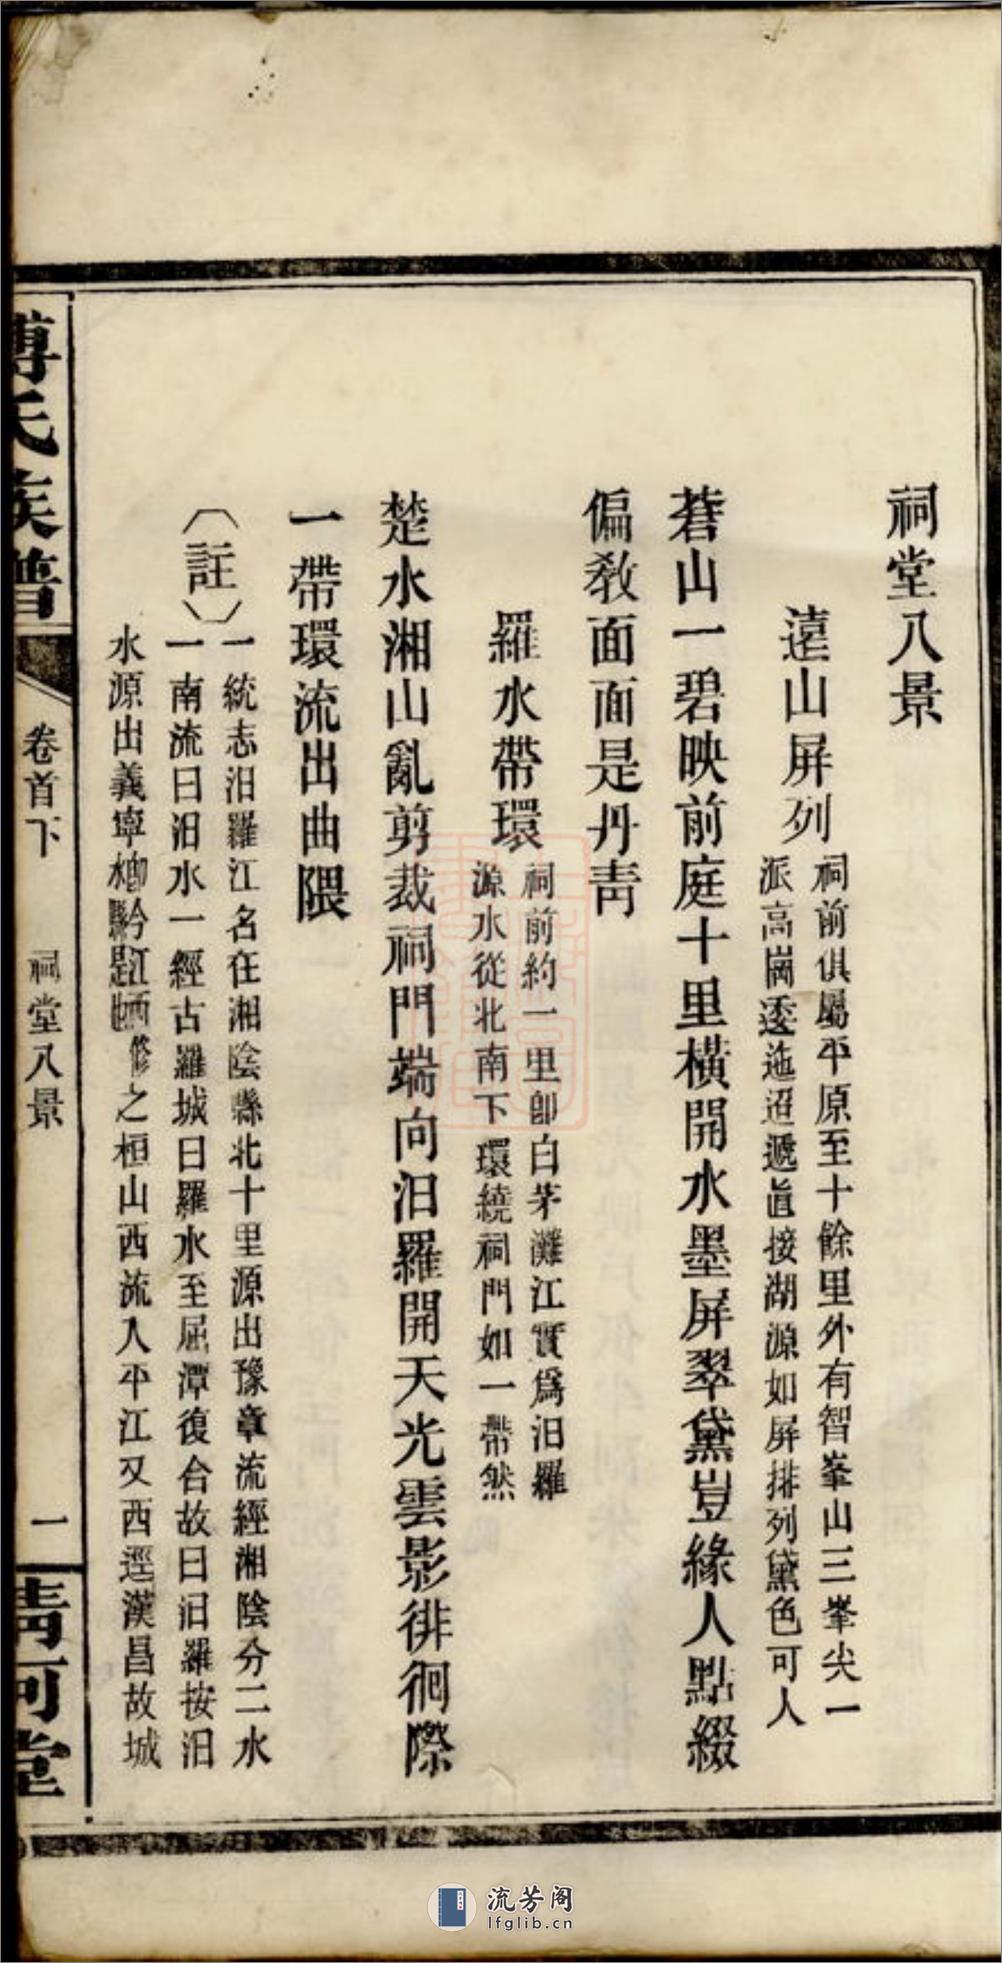 祠堂八景
遠山屏列
祠前俱屬平原至十餘里外有智峯山三峯尖一
派高崗逶迤迢遞直接湖源如屏排列黛色可人
蒼山一碧映前庭十里橫開水墨屏翠黛豈緣人點綴
偏敎面面是丹靑
羅水帶環
祠前約一里卽白茅灘江實爲汨羅
源水從北南下環繞祠門如一帶然
楚水湘山亂剪裁祠門端向汨羅開天光雲影徘徊際
一帶環流出曲隈
〔註〕
一統志汨羅江名在湘陰縣北十里源出豫章流經湘陰分二水
一南流曰汨水一經古羅城曰羅水至屈潭復合故曰汨羅按汨
水源出義寧州卽今江西修水縣是也之桓山西流入平江又西逕漢昌故城
傅氏族譜
卷首下
祠堂八景
一
靑河堂
流芳阁
lfglib.cn